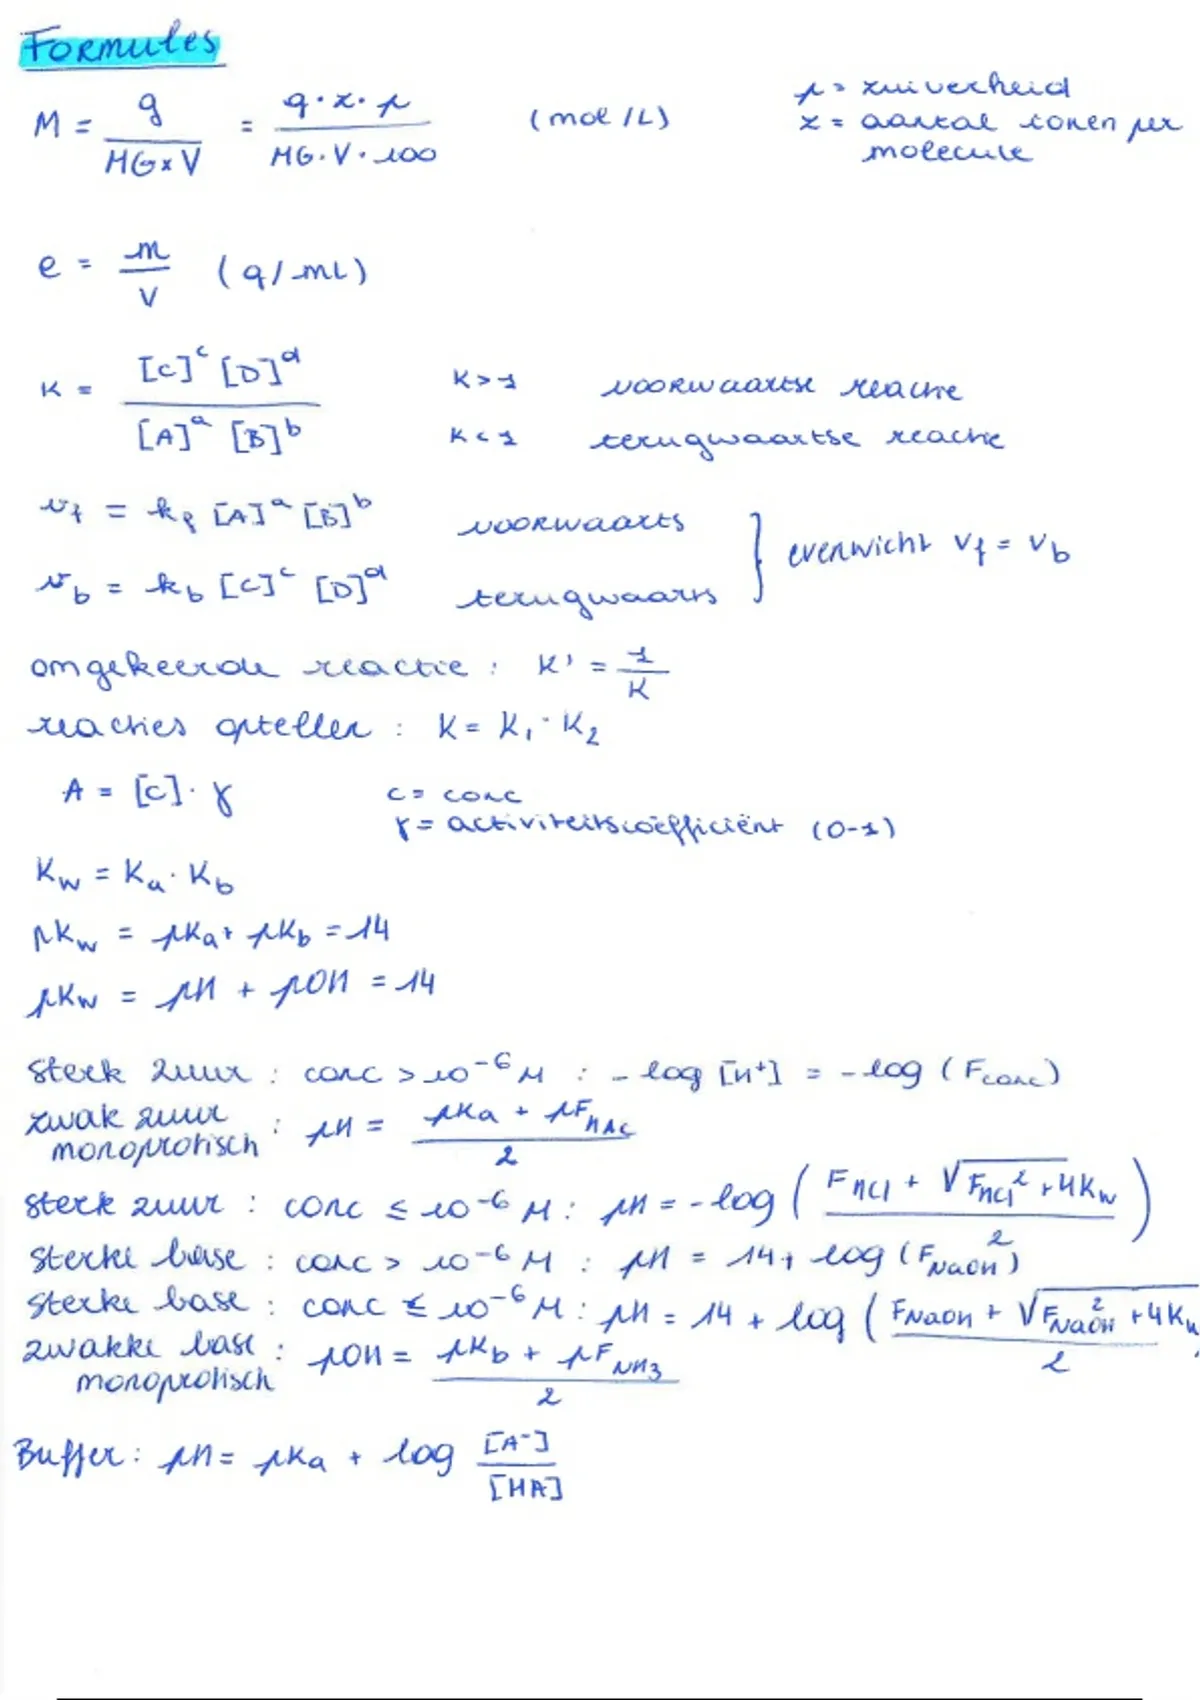 Formules
M = g / MG x V = g · z · p / MG · V · 100 (mol/L) p = zuiverheid
z = aantal ionen per
molecule
e = m / V (g/mL)
K = [C]^c [D]^d / [A]^a [B]^b K > 1 voorwaartse reactie
K < 1 terugwaartse reactie
v_f = k_f [A]^a [B]^b voorwaarts
v_b = k_b [C]^c [D]^d terugwaarts } evenwicht v_f = v_b
omgekeerde reactie : K' = 1 / K
reacties optellen : K = K₁ · K₂
A = [C] · γ c = conc
γ = activiteitscoëfficiënt (0-1)
K_w = K_a · K_b
pK_w = pK_a + pK_b = 14
pK_w = pH + pOH = 14
Sterk zuur : conc > 10^-6 M : - log [H+] = - log (F_conc)
zwak zuur monoprotisch : pH = pK_a + pF_HAc / 2
sterk zuur : conc ≤ 10^-6 M : pH = - log ( F_HCl + √F_HCl² + 4K_w / 2 )
Sterke base : conc > 10^-6 M : pH = 14 + log (F_NaOH)
Sterke base : conc ≤ 10^-6 M : pH = 14 + log ( F_NaOH + √F_NaOH² + 4K_w / 2
zwakke base monoprotisch : pOH = pK_b + pF_NH3 / 2
Buffer : pH = pK_a + log [A⁻] / [HA]